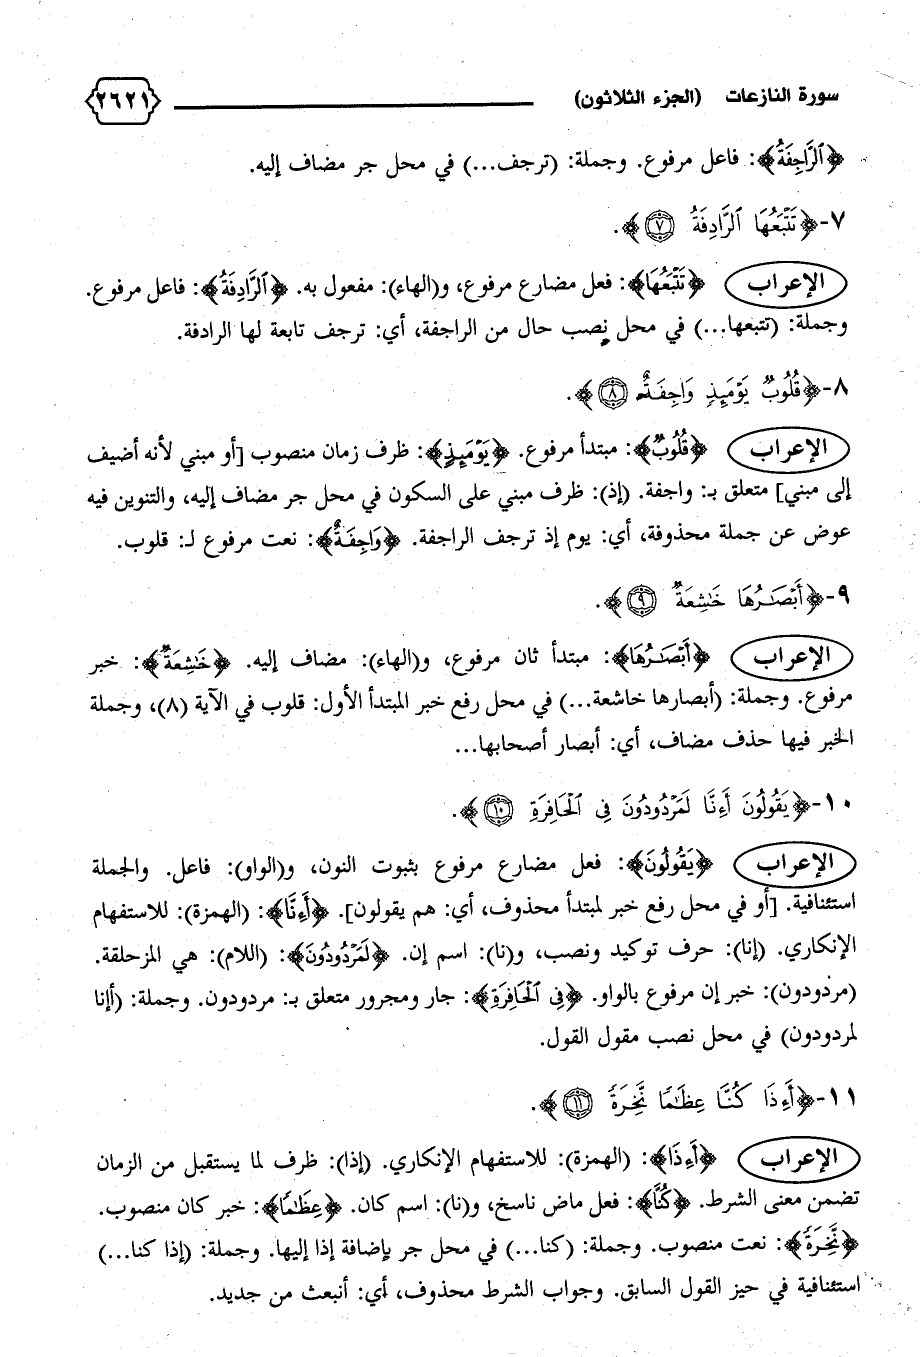 سورة النازعات (الجزء الثلاثون) ٢٦٢١
﴿ٱلرَّاجِفَةُ﴾: فاعل مرفوع. وجملة: (ترجف...) في محل جر مضاف إليه.
٧-﴿تَتْبَعُهَا ٱلرَّادِفَةُ ٧﴾.
الإعراب ﴿تَتْبَعُهَا﴾: فعل مضارع مرفوع، و(الهاء): مفعول به. ﴿ٱلرَّادِفَةُ﴾: فاعل مرفوع.
وجملة: (تتبعها...) في محل نصب حال من الراجفة، أي: ترجف تابعة لها الرادفة.
٨-﴿قُلُوبٌ يَوْمَئِذٍ وَاجِفَةٌ ٨﴾.
الإعراب ﴿قُلُوبٌ﴾: مبتدأ مرفوع. ﴿يَوْمَئِذٍ﴾: ظرف زمان منصوب [أو مبني لأنه أضيف
إلى مبني] متعلق بـ: واجفة. (إذ): ظرف مبني على السكون في محل جر مضاف إليه، والتنوين فيه
عوض عن جملة محذوفة، أي: يوم إذ ترجف الراجفة. ﴿وَاجِفَةٌ﴾: نعت مرفوع لـ: قلوب.
٩-﴿أَبْصَـٰرُهَا خَـٰشِعَةٌ ٩﴾.
الإعراب ﴿أَبْصَـٰرُهَا﴾: مبتدأ ثان مرفوع، و(الهاء): مضاف إليه. ﴿خَـٰشِعَةٌ﴾: خبر
مرفوع. وجملة: (أبصارها خاشعة...) في محل رفع خبر المبتدأ الأول: قلوب في الآية (٨)، وجملة
الخبر فيها حذف مضاف، أي: أبصار أصحابها...
١٠-﴿يَقُولُونَ أَءِنَّا لَمَرْدُودُونَ فِى ٱلْحَافِرَةِ ١٠﴾.
الإعراب ﴿يَقُولُونَ﴾: فعل مضارع مرفوع بثبوت النون، و(الواو): فاعل. والجملة
استئنافية. [أو في محل رفع خبر لمبتدأ محذوف، أي: هم يقولون]. ﴿أَءِنَّا﴾: (الهمزة): للاستفهام
الإنكاري. (إنا): حرف توكيد ونصب، و(نا): اسم إن. ﴿لَمَرْدُودُونَ﴾: (اللام): هي المزحلقة.
(مردودون): خبر إن مرفوع بالواو. ﴿فِى ٱلْحَافِرَةِ﴾: جار ومجرور متعلق بـ: مردودون. وجملة: (أإنا
لمردودون) في محل نصب مقول القول.
١١-﴿أَءِذَا كُنَّا عِظَـٰمًا نَّخِرَةً ١١﴾.
الإعراب ﴿أَءِذَا﴾: (الهمزة): للاستفهام الإنكاري. (إذا): ظرف لما يستقبل من الزمان
تضمن معنى الشرط. ﴿كُنَّا﴾: فعل ماض ناسخ، و(نا): اسم كان. ﴿عِظَـٰمًا﴾: خبر كان منصوب.
﴿نَّخِرَةً﴾: نعت منصوب. وجملة: (كنا...) في محل جر بإضافة إذا إليها. وجملة: (إذا كنا...)
استئنافية في حيز القول السابق. وجواب الشرط محذوف، أي: أنبعث من جديد.